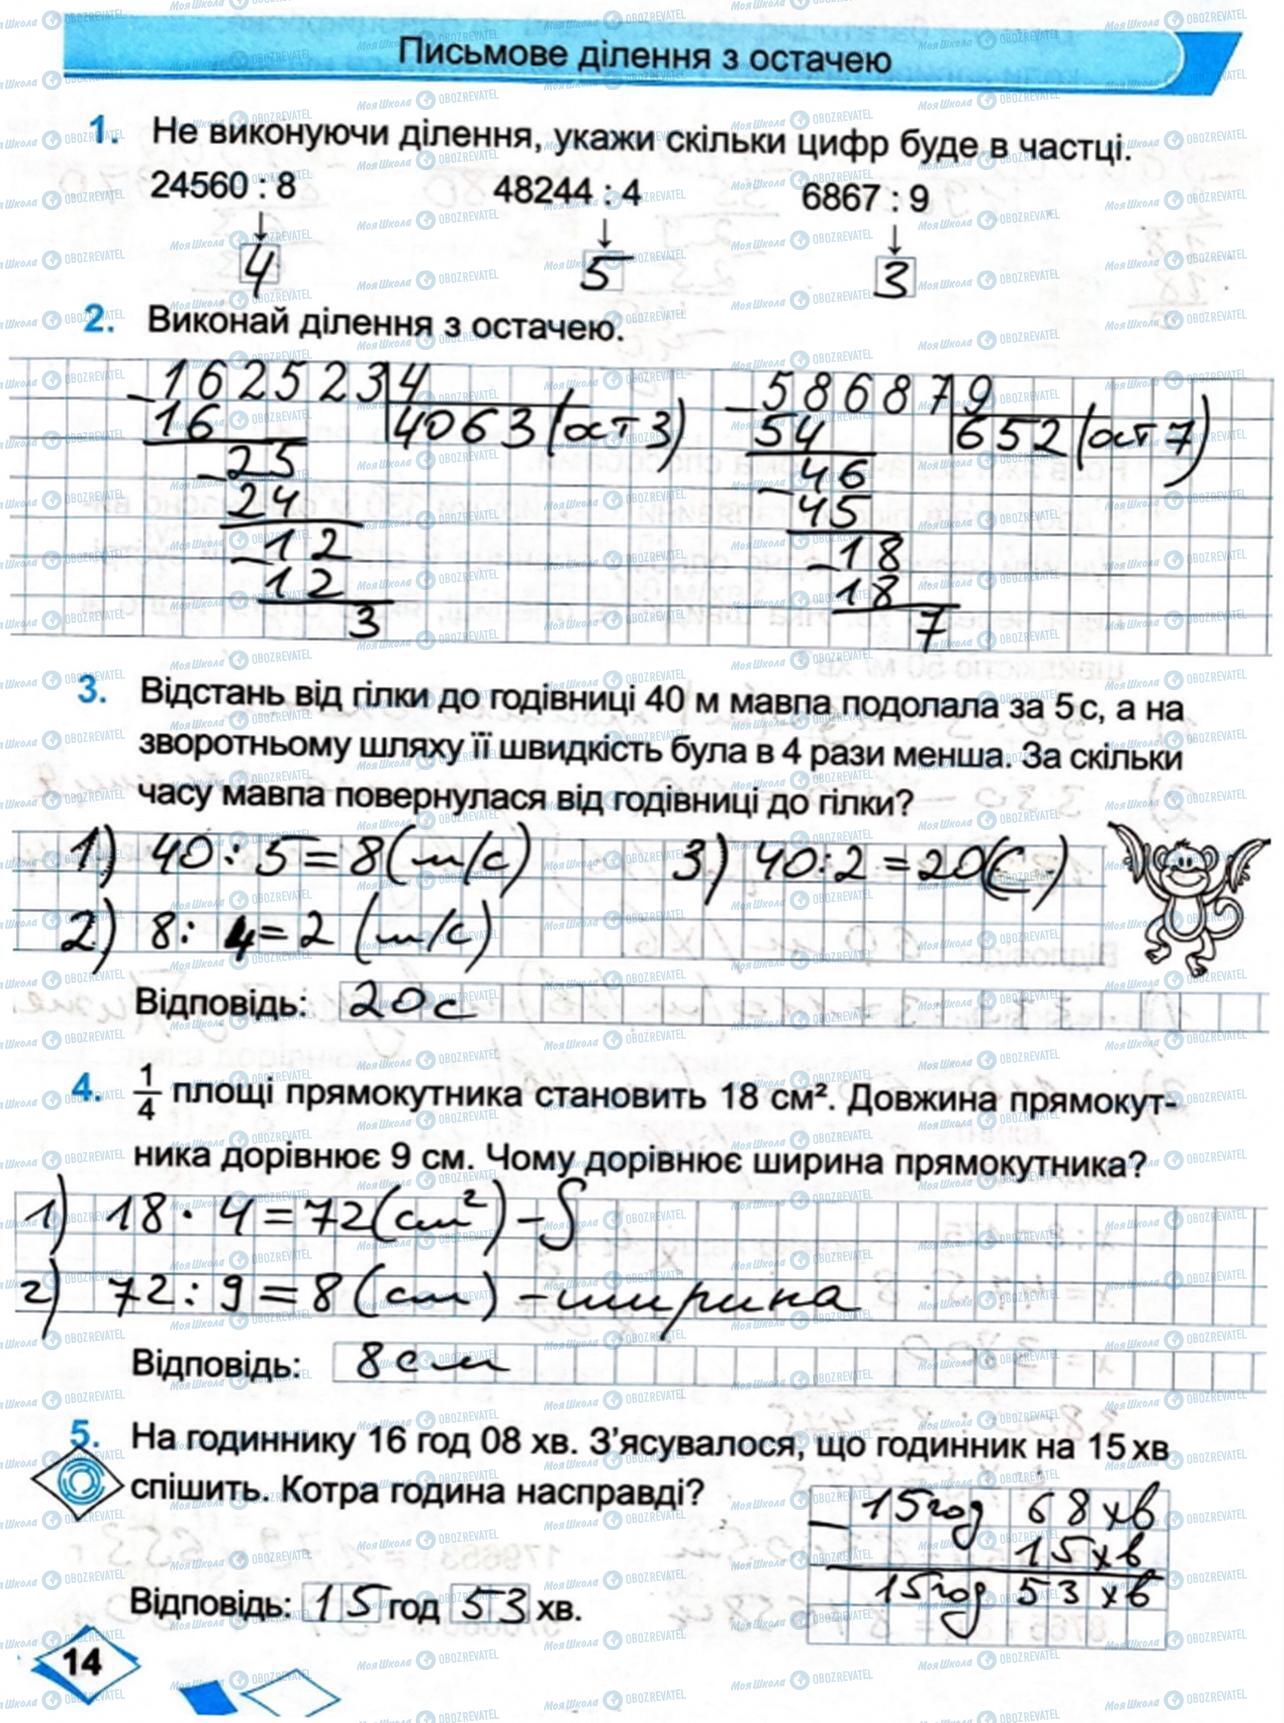 Письмове ділення з остачею
1. Не виконуючи ділення, укажи скільки цифр буде в частці.
24560 : 8 48244 : 4 6867 : 9
4 5 3
2. Виконай ділення з остачею.
1625234 586879
16 4063 (ост 3) 54 652 (ост 7)
25 46
24 45
12 18
12 18
3 7
3. Відстань від гілки до годівниці 40 м мавпа подолала за 5 с, а на
зворотньому шляху її швидкість була в 4 рази менша. За скільки
часу мавпа повернулася від годівниці до гілки?
1) 40 : 5 = 8 (м/с) 3) 40 : 2 = 20 (с)
2) 8 : 4 = 2 (м/с)
Відповідь: 20 с
4. 1/4 площі прямокутника становить 18 см². Довжина прямокут-
ника дорівнює 9 см. Чому дорівнює ширина прямокутника?
1) 18 · 4 = 72 (см²) – S
2) 72 : 9 = 8 (см) – ширина
Відповідь: 8 см
5. На годиннику 16 год 08 хв. З’ясувалося, що годинник на 15 хв
спішить. Котра година насправді?
– 15 год 68 хв
15 хв
15 год 53 хв
Відповідь: 15 год 53 хв.
14
МояШкола OBOZREVATEL